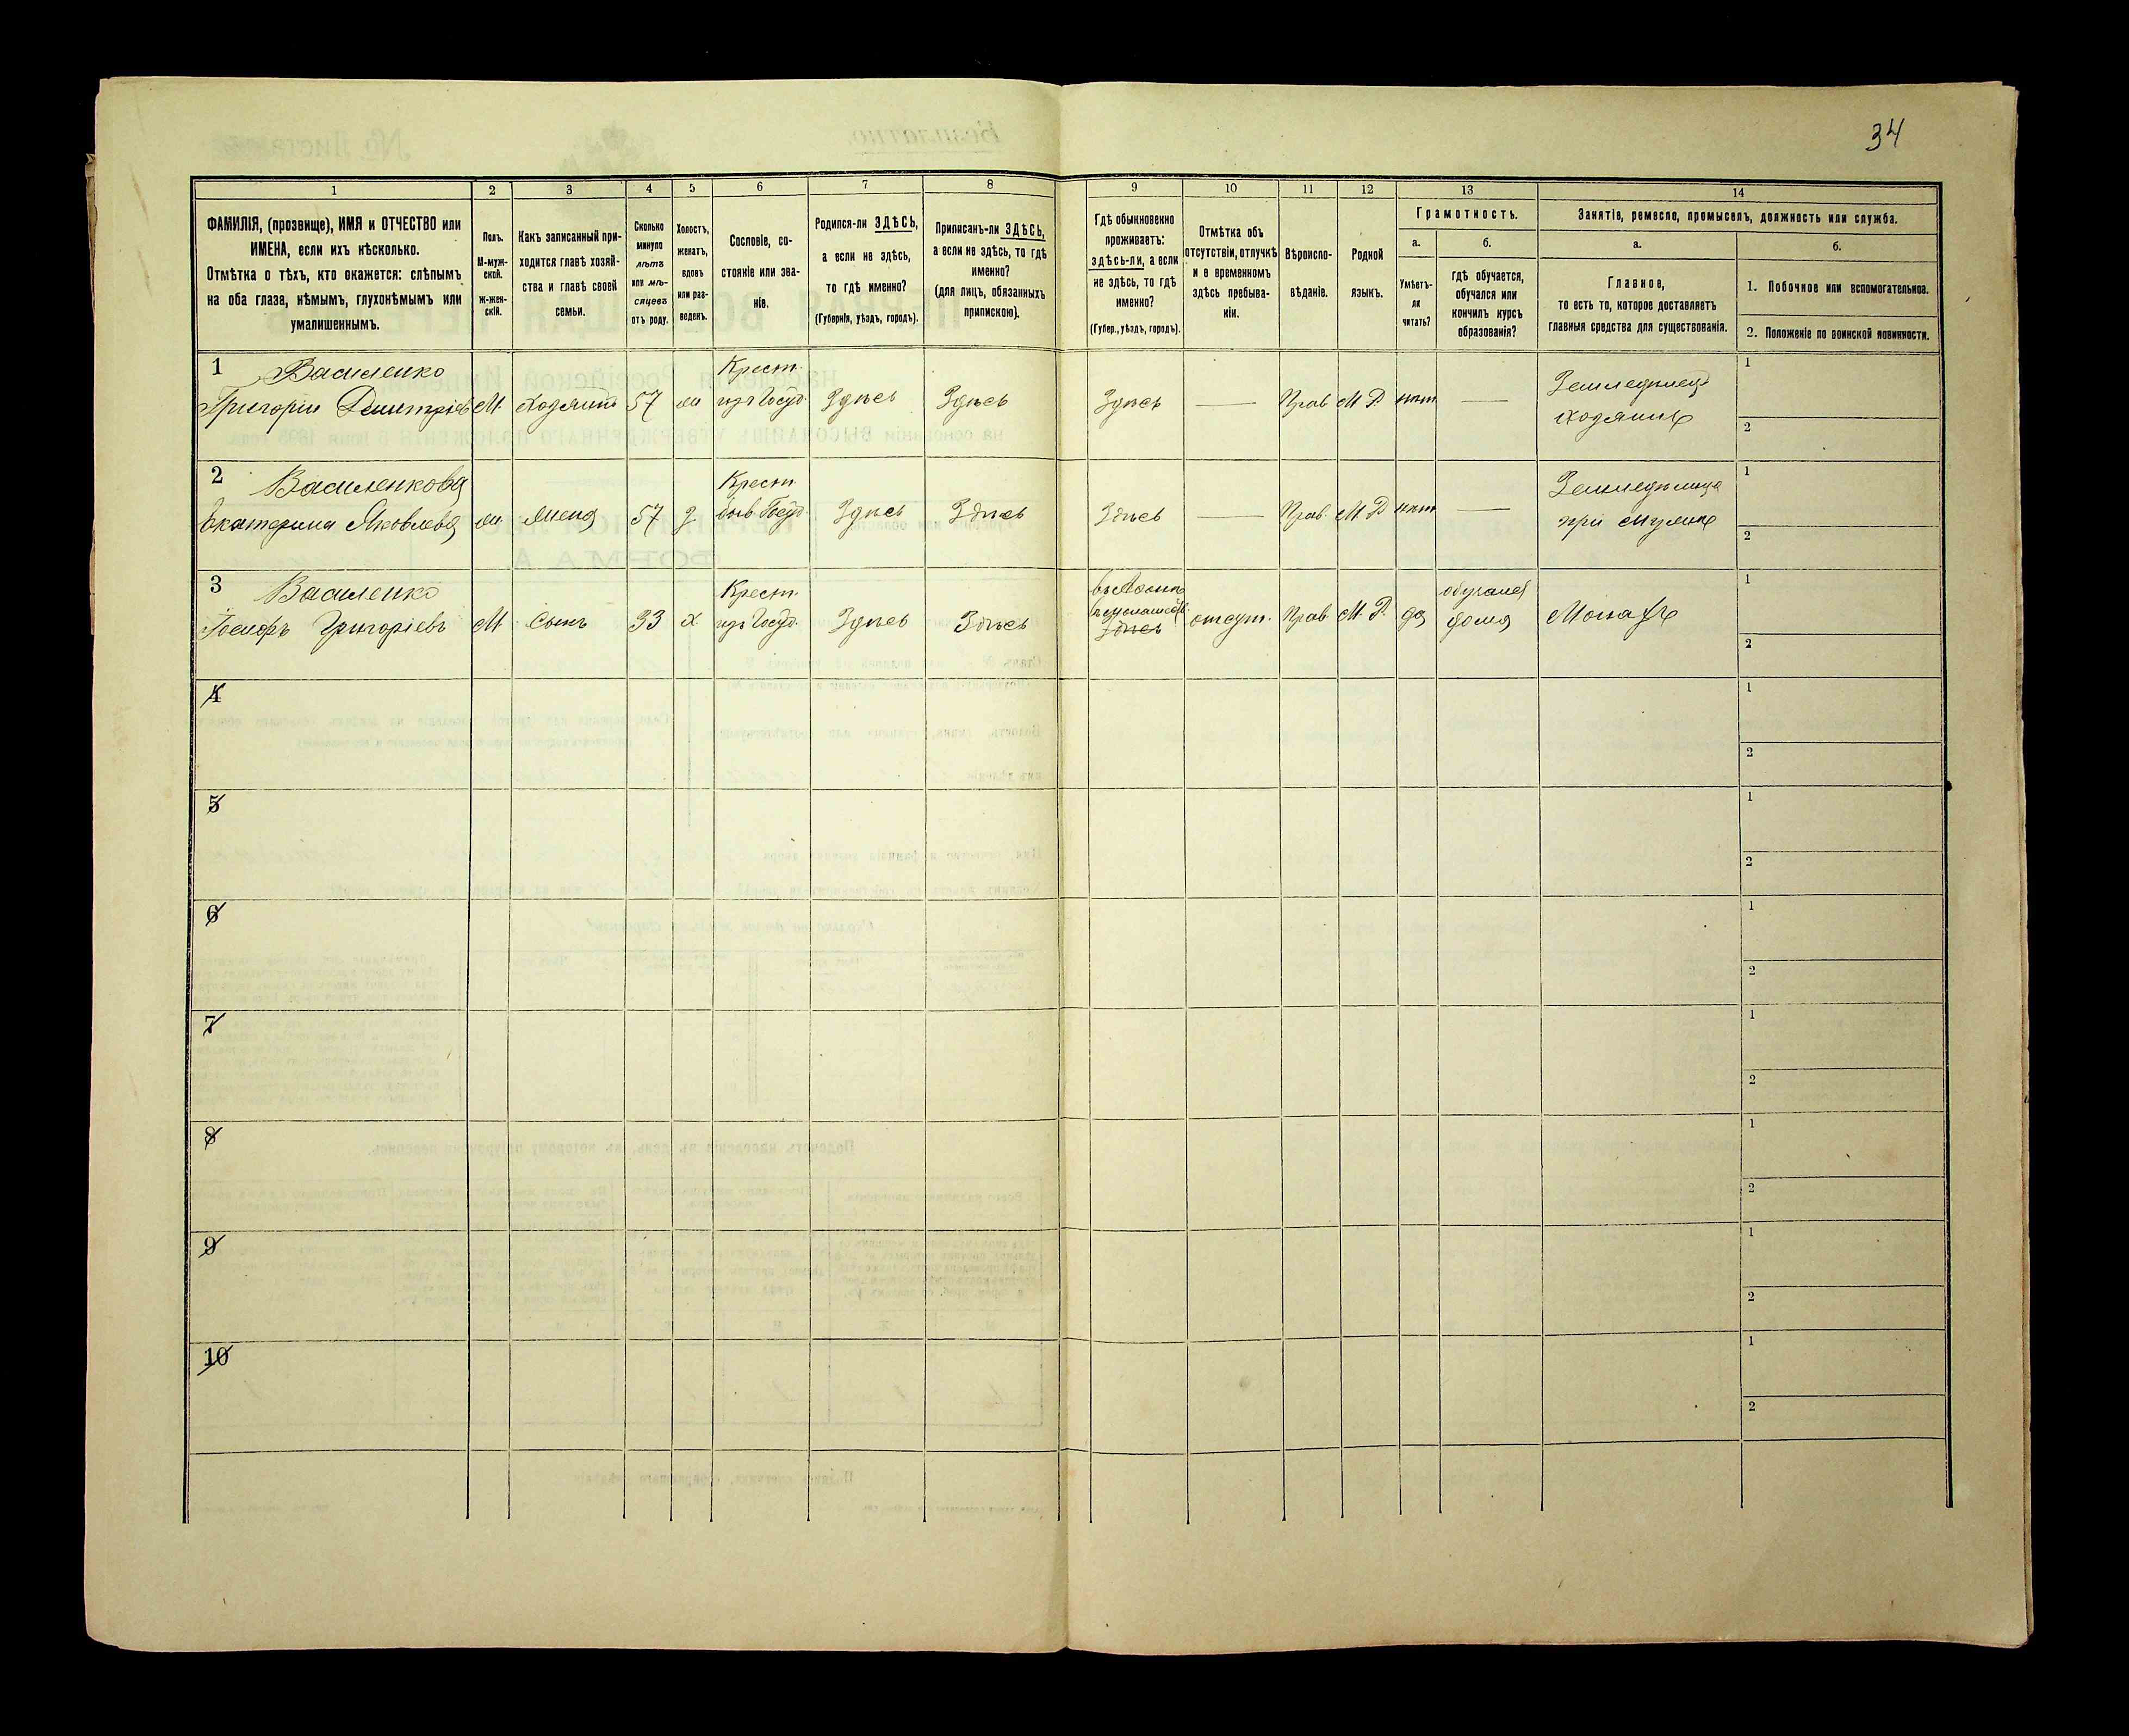 34
1 2 3 4 5 6 7 8 9 10 11 12 13 14
ФАМИЛІЯ, (прозвище), ИМЯ и ОТЧЕСТВО или
ИМЕНА, если ихъ нѣсколько.
Отмѣтка о тѣхъ, кто окажется: слѣпымъ
на оба глаза, нѣмымъ, глухонѣмымъ или
умалишеннымъ.
Полъ.
М-муж-
ской.
ж-жен-
скій.
Какъ записанный при-
ходится главѣ хозяй-
ства и главѣ своей
семьи.
Сколько
минуло
лѣтъ
или мѣ-
сяцевъ
отъ роду.
Холостъ,
женатъ,
вдовъ
или раз-
веденъ.
Сословіе, со-
стояніе или зва-
ніе.
Родился-ли ЗДѢСЬ,
а если не здѣсь,
то гдѣ именно?
(Губернія, уѣздъ, городъ).
Приписанъ-ли ЗДѢСЬ,
а если не здѣсь, то гдѣ
именно?
(для лицъ, обязанныхъ
припискою).
Гдѣ обыкновенно
проживаетъ:
здѣсь-ли, а если
не здѣсь, то гдѣ
именно?
(Губер., уѣздъ, городъ).
Отмѣтка объ
отсутствіи, отлучкѣ
и о временномъ
здѣсь пребыва-
ніи.
Вѣроиспо-
вѣданіе.
Родной
языкъ.
Грамотность.
а.
Умѣетъ-
ли
читать?
б.
гдѣ обучается,
обучался или
кончилъ курсъ
образованія?
Занятіе, ремесло, промыселъ, должность или служба.
а.
Главное,
то есть то, которое доставляетъ
главныя средства для существованія.
б.
1. Побочное или вспомогательное.
2. Положеніе по воинской повинности.
1 Василенко
Григорій Дмитріевъ М. хозяинъ 57 ж Крест. изъ Госуд. Здѣсь Здѣсь Здѣсь — Прав М. Р. нѣт — Земледѣлецъ
хозяинъ
1
2
2 Василенкова
Екатерина Яковлева ж. жена 57 з Крест. быв Госуд. Здѣсь Здѣсь Здѣсь — Прав. М. Р. нѣт — Земледѣлица
при мужѣ
1
2
3 Василенко
Іосифъ Григоріевъ М. сынъ 33 х Крест. изъ Госуд. Здѣсь Здѣсь
Здѣсь отсут. Прав. М. Р. да обучался
дома Монахъ
1
2
4
1
2
5
1
2
6
1
2
7
1
2
8
1
2
9
1
2
10
1
2